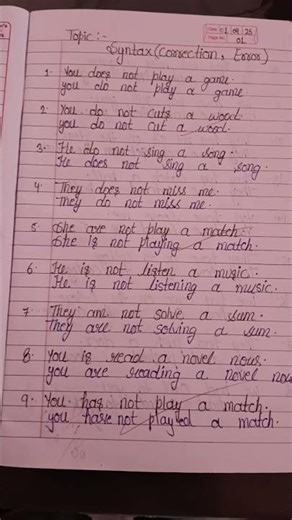 Topic :-
01 04 25
01
Syntax (Correction, Error)
1. You does not play a game.
you do not play a game
2. You do not cuts a wood.
you do not cut a wood.
3. He do not sing a song.
He does not sing a song.
4. They does not miss me.
They do not miss me.
5. She are not play a match.
She is not playing a match.
6. He is not listen a music.
He is not listening a music.
7. They am not solve a sum.
They are not solving a sum.
8. You is read a novel now.
you are reading a novel now
9. You has not play a match.
you have not played a match.